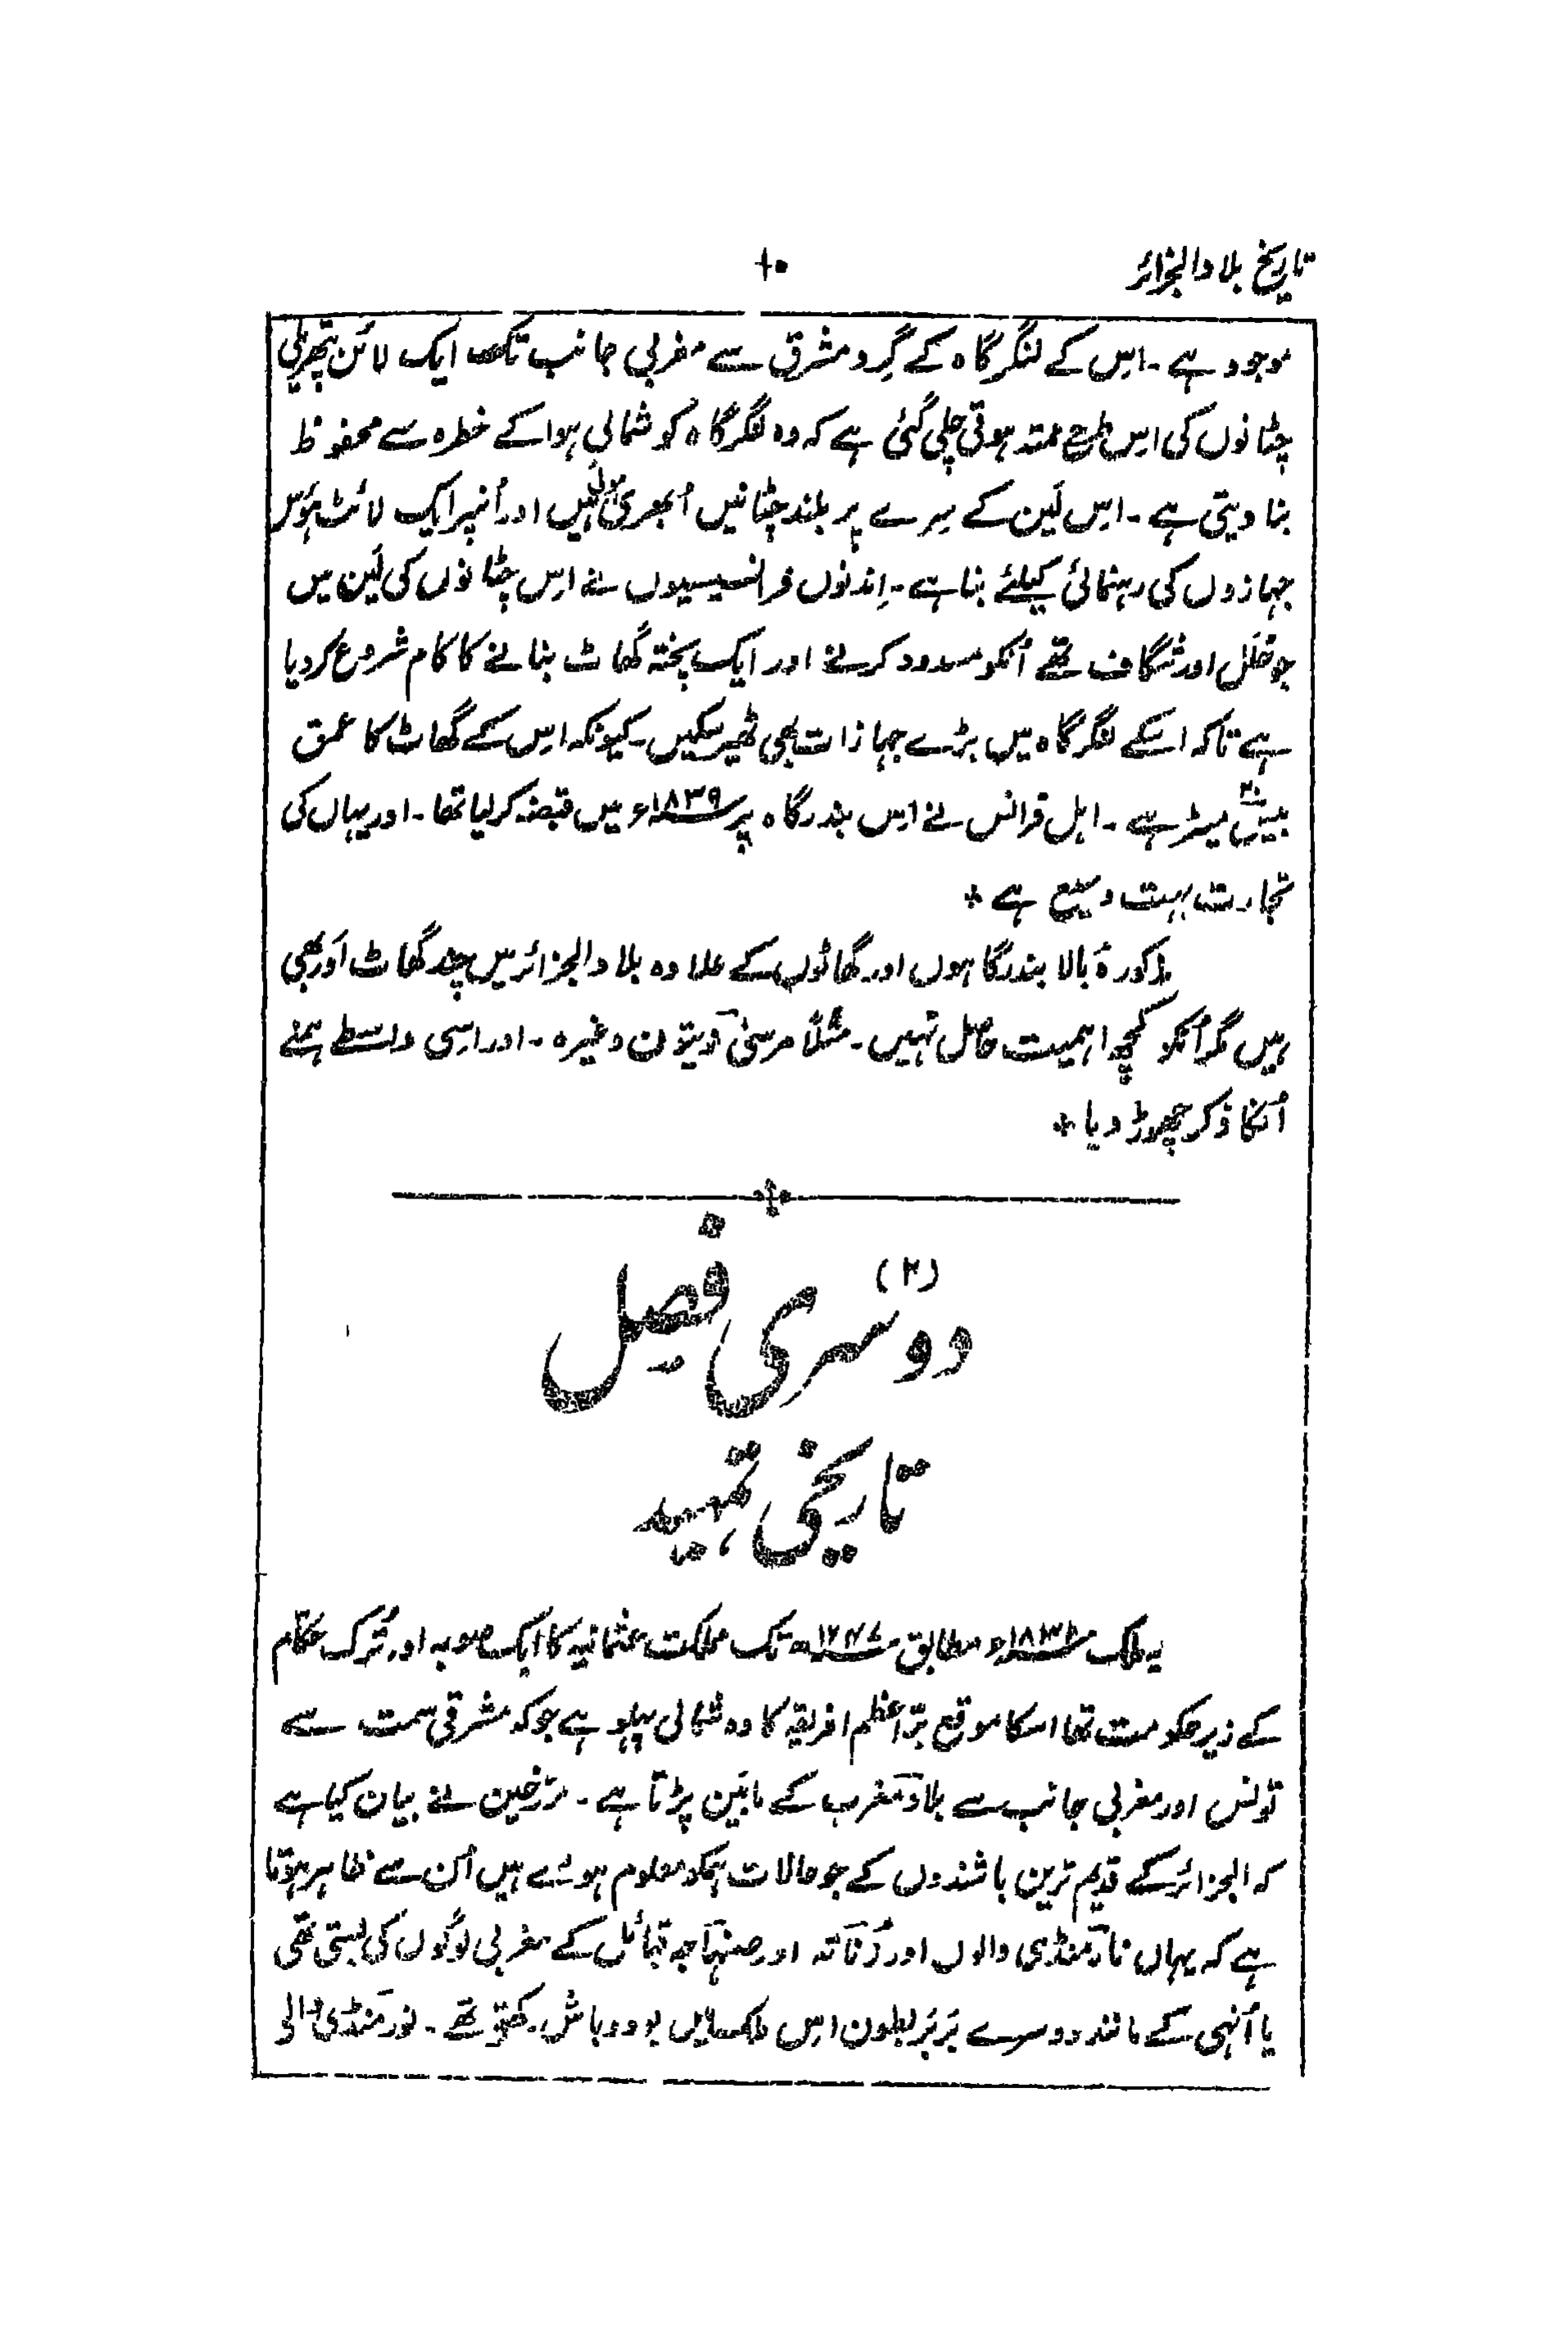 تاریخ بلاد الجزائر
۱۰
موجود ہے۔ اِس کے لنگرگاہ کے گِرد مشرق سے مغربی جانب تک ایک لائن پتھریلی
چٹانوں کی اِس طرح ممتد ہوتی چلی گئی ہے کہ وہ لنگرگاہ کو شمالی ہوا کے خطرہ سے محفوظ
بنا دیتی ہے۔ اِس لَین کے سِرے پر بلند چٹانیں اُبھری ہوئی ہیں اور اُنپر ایک لائٹ ہؤس
جہازوں کی رہنمائی کیلئے بنا ہے۔ اِندنوں فرانسیسیوں نے اِس چٹانوں کی لَین میں
جو خلل اور شگاف تھے اُنکو مسدود کرنے اور ایک پختہ گھاٹ بنانے کا کام شروع کر دیا
ہے تاکہ اسکے لنگرگاہ میں بڑے جہازات بھی ٹھیر سکیں۔ کیونکہ اِس کے گھاٹ کا عمق
بیس ۲۰ میٹر ہے۔ اہل فرانس نے اِس بندرگاہ پر ۱۸۳۹ء میں قبضہ کر لیا تھا۔ اور یہاں کی
تجارت بہت وسیع ہے ٭
مذکورۂ بالا بندرگاہوں اور گھاٹوں کے علاوہ بلاد الجزائر میں چند گھاٹ اَور بھی
ہیں مگر اُنکو کچھ اہمیت حاصل نہیں۔ مثلاً مرسیٰ ویتون وغیرہ۔ اور اسِی واسطے ہمنے
اُنکا ذکر چھوڑ دیا ٭
(۲)
دوسری فصل
تاریخی تمہید
یہ ملک ۱۸۳۰ء مطابق تک مملکت عثمانیہ کا ایک صوبہ اور تُرک حکّام
کے زیر حکومت تھا اسکا موقع برّاعظم افریقہ کا وہ شمالی پہلو ہے جو کہ مشرقی سمت سے
تونس اور مغربی جانب سے بلاد مغرب کے مابَین پڑتا ہے۔ مؤرخین نے بیان کیا ہے
کہ الجزائر کے قدیم ترین باشندوں کے جو حالات ہمکو معلوم ہوئے ہیں اُن سے ظاہر ہوتا
ہے کہ یہاں نارمنڈی والوں اور زُناتہ اور صنہاجہ قبائل کے مغربی لوگوں کی بستی تھی
یا اُنہی کے مانند دوسرے بَربَر بطون اِس ملک میں بود و باش رکھتے تھے۔ نورمنڈی والی